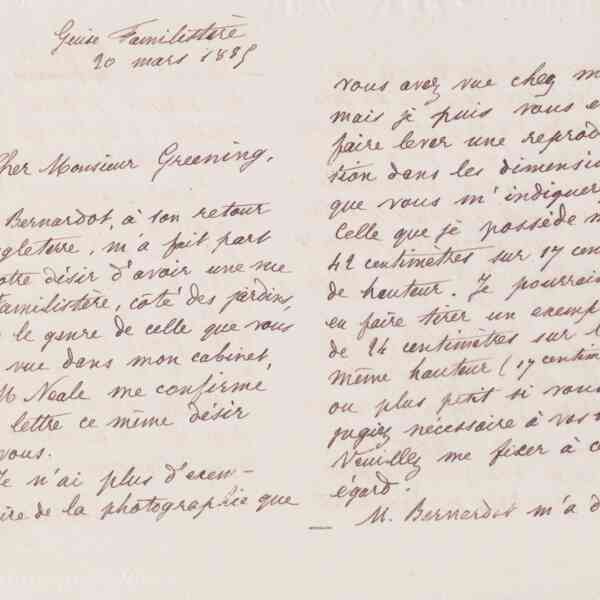 Guise Familistère
20 mars 1885
Cher Monsieur Greening,
Bernardot, à son retour
ngleterre, m'a fait part
otre désir d'avoir une vue
Familistère, côté des jardins,
le genre de celle que vous
vue dans mon cabinet,
M Neale me confirme
lettre ce même désir
vous.
Je n'ai plus d'exem-
ire de la photographie que
vous avez vue chez m
mais je puis vous e
faire lever une reprodu
sion dans les dimension
que vous m'indiquer
Celle que je possède m
42 centimètres sur 17 cen
de hauteur. Je pourrai
en faire tirer un exemp
de 24 centimètres sur l
même hauteur (17 centim
ou plus petit si vous
jugiez nécessaire à vos
Veuillez me fixer à c
égard.
M. Bernardot m'a d